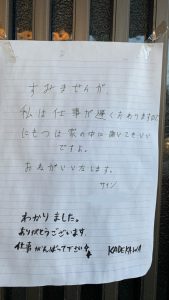 すみませんが、
私は仕事が遅くおわりますので
にもつは家の中に置いてもいい
ですよ。
おねがいいたします。
サイン
わかりました。
ありがとうございます。
仕事がんばって下さい
KADEKAWA